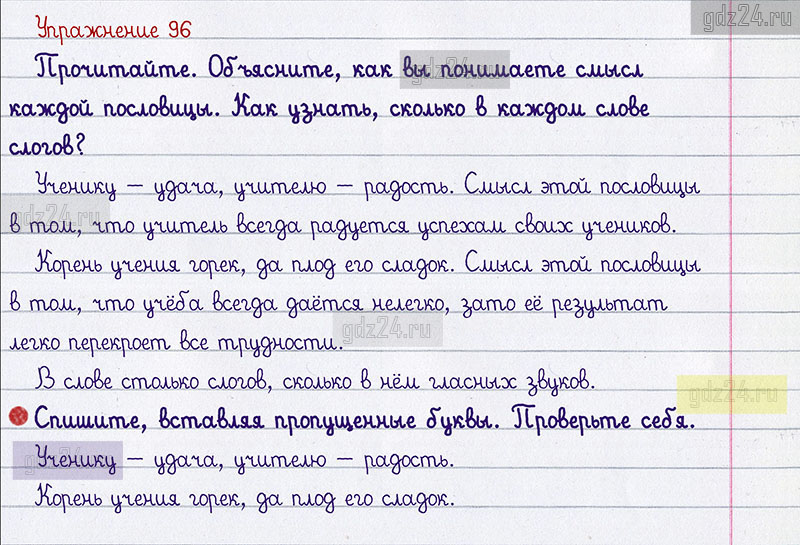 gdz24.ru
Упражнение 96
Прочитайте. Объясните, как вы понимаете смысл
gdz24.ru
каждой пословицы. Как узнать, сколько в каждом слове
слогов?
Ученику – удача, учителю – радость. Смысл этой пословицы
gdz24.ru
в том, что учитель всегда радуется успехам своих учеников.
Корень учения горек, да плод его сладок. Смысл этой пословицы
в том, что учёба всегда даётся нелегко, зато её результат
gdz24.ru
легко перекроет все трудности.
В слове столько слогов, сколько в нём гласных звуков.
gdz24.ru
Спишите, вставляя пропущенные буквы. Проверьте себя.
Ученику – удача, учителю – радость.
gdz24.ru
Корень учения горек, да плод его сладок.